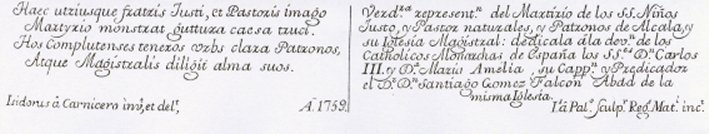 Haec utriusque fratris Iusti, et Pastoris imago
Martyrio monstrat guttura caesa truci.
Hos Complutenses teneros urbs clara Patronos,
Atque Magistralis diligit alma suos.
Isidorus â Carnicero inv,ͭ et delͭ,
Aͦ. 1759.
Verdͬᵃ represent.ⁿ del Martirio de los SS. Niños
Justo, y Pastor naturales, y Patronos de Alcala, y
su Iglesia Magistral: dedicala âla dev.ⁿ de los
Catholicos Monarchas de España los SS.ᵉˢ D.ⁿ Carlos
III. y D.ᵃ Maria Amelia, su Capp.ⁿ y Predicador
el D.ʳ D.ⁿ Santiago Gomez Falcon Abad de la
misma Iglesia.
I.ˢ â Pal.ˢ sculp.ʳ Reg. Mat.ⁱ inc.ᵗ